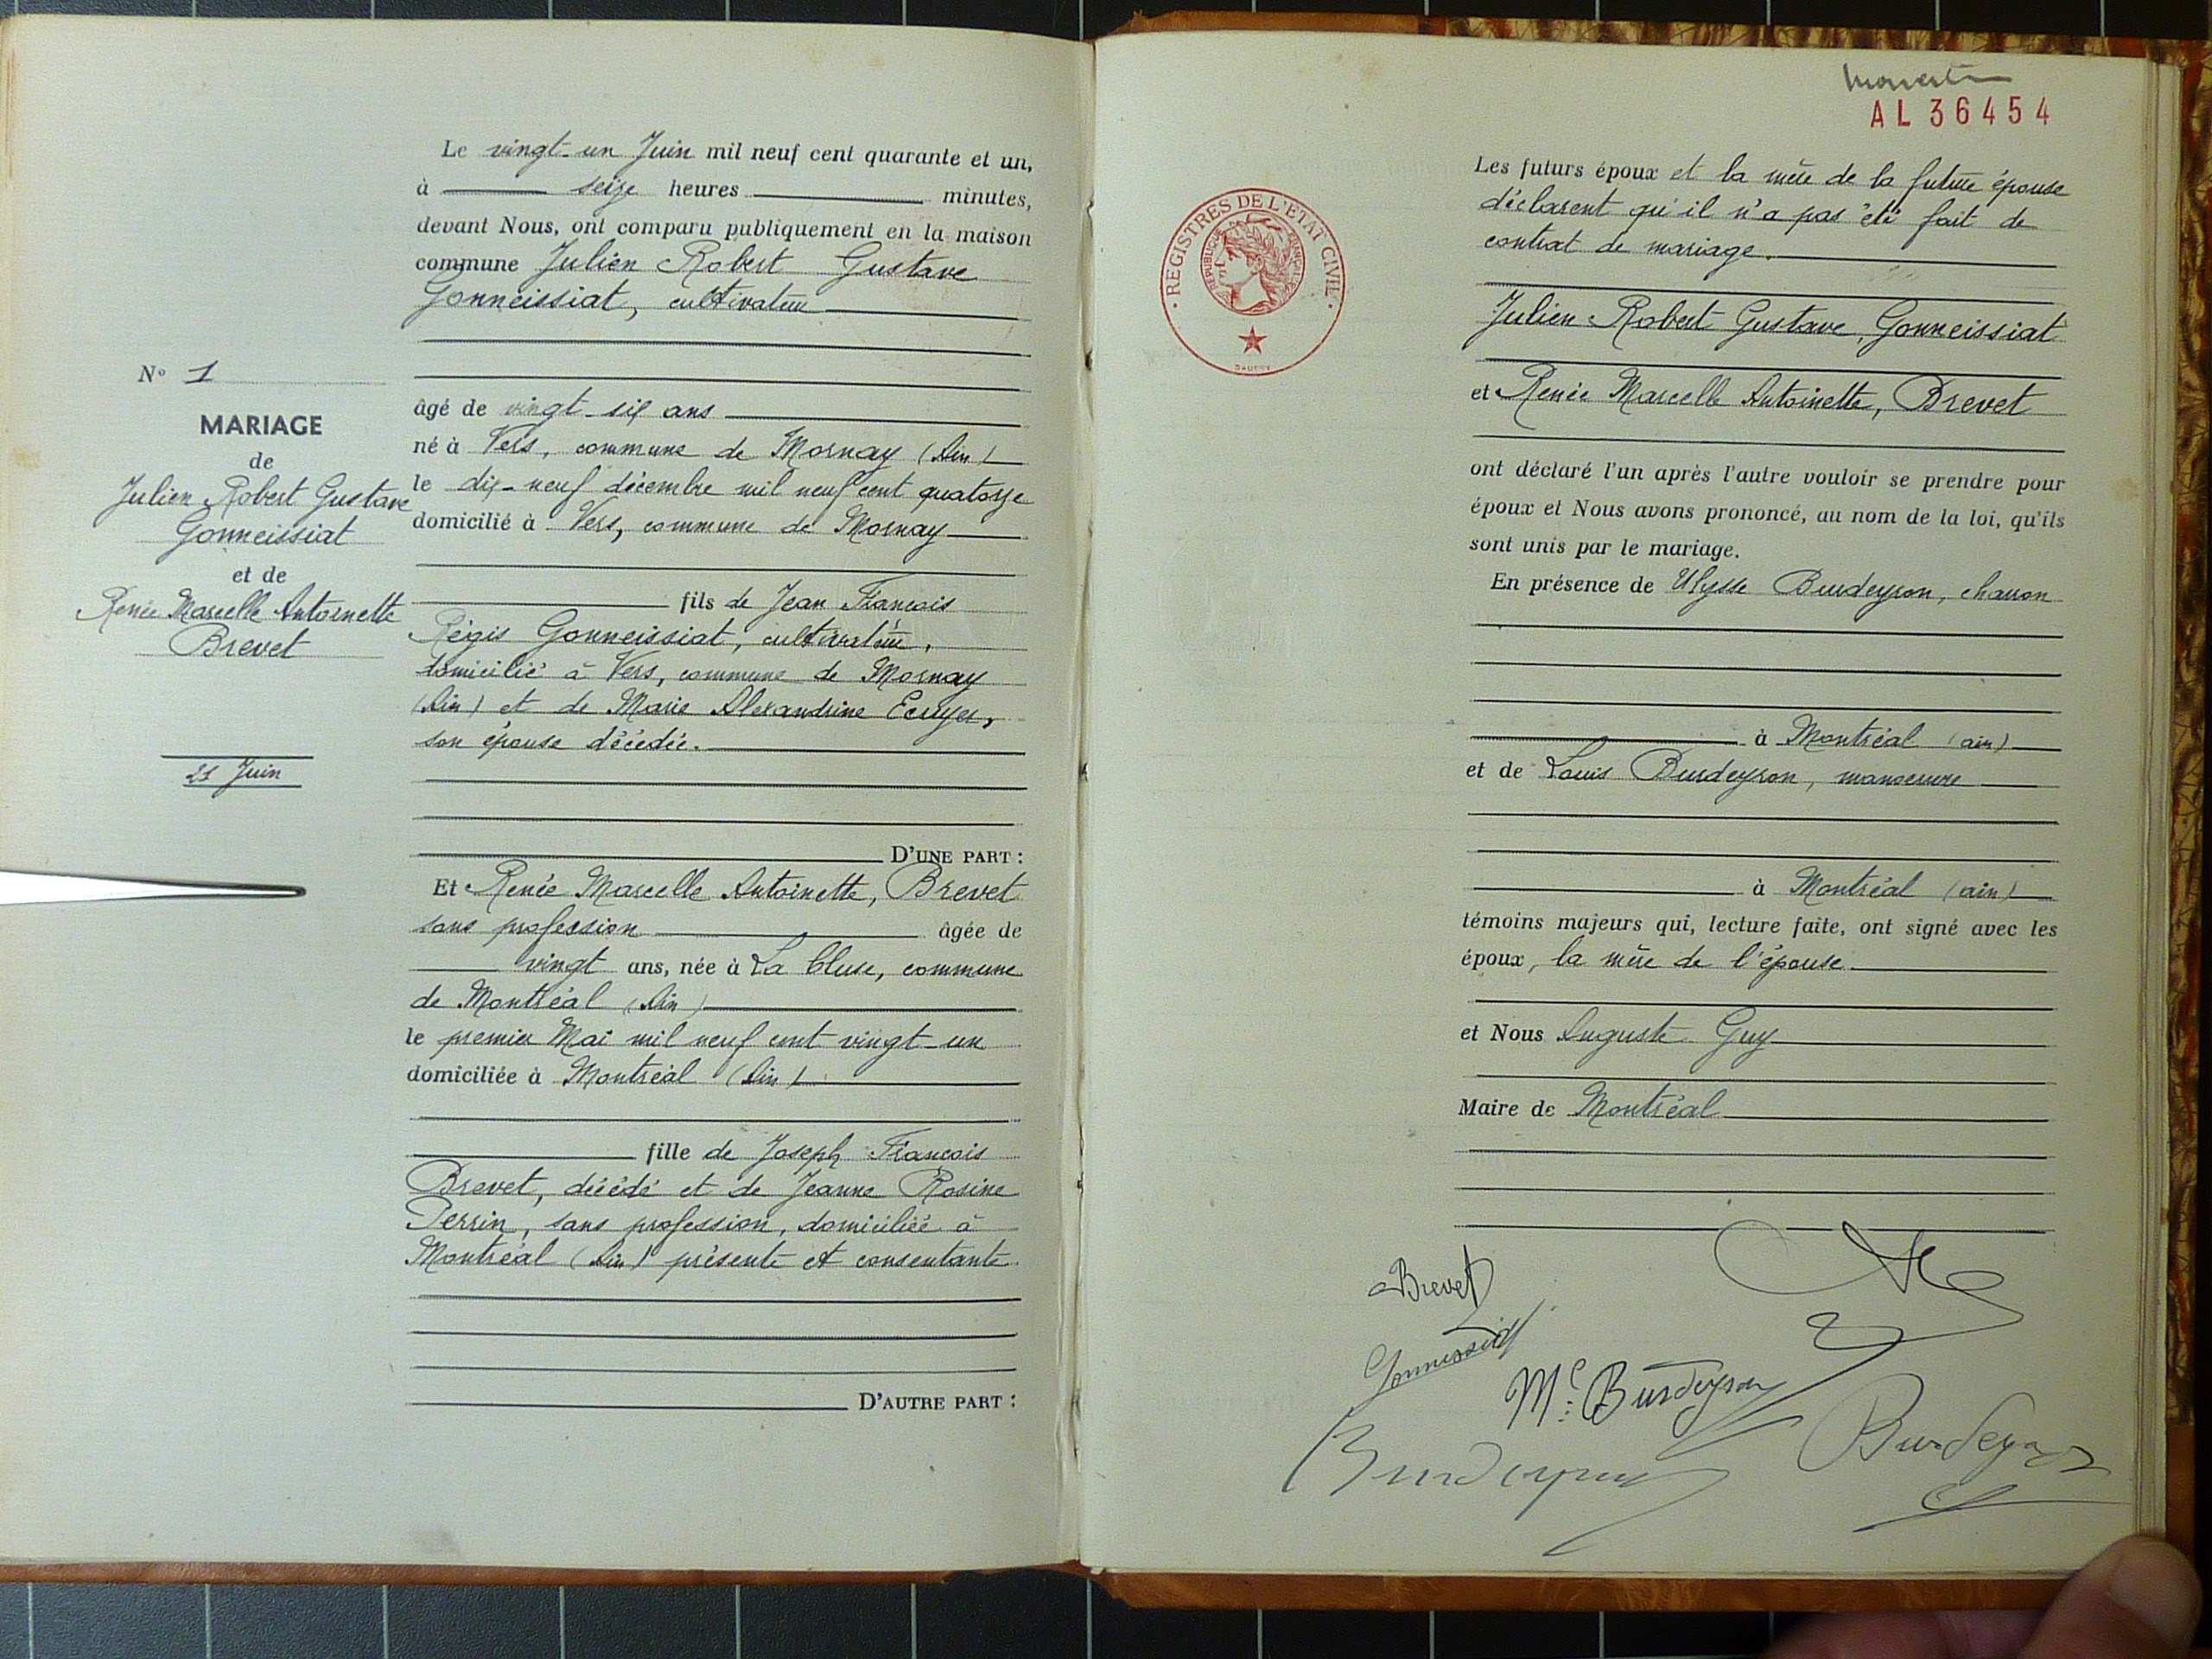 N° 1
MARIAGE
de
Julien Robert Gustave
Gonneissiat
et de
Renée Marcelle Antoinette
Brevet
21 Juin
Le vingt-un Juin mil neuf cent quarante et un,
à seize heures minutes,
devant Nous, ont comparu publiquement en la maison
commune Julien Robert Gustave
Gonneissiat, cultivateur
âgé de vingt-six ans
né à Vers, commune de Mornay (Ain)
le dix-neuf décembre mil neuf cent quatorze
domicilié à Vers, commune de Mornay
fils de Jean François
Régis Gonneissiat, cultivateur,
domicilié à Vers, commune de Mornay
(Ain) et de Marie Alexandrine Ecuyer,
son épouse décédée.
D'UNE PART :
Et Renée Marcelle Antoinette, Brevet
sans profession âgée de
vingt ans, née à La Cluse, commune
de Montréal (Ain)
le premier Mai mil neuf cent vingt-un
domiciliée à Montréal (Ain)
fille de Joseph François
Brevet, décédé et de Jeanne Rosine
Perrin, sans profession, domiciliée à
Montréal (Ain) présente et consentante
D'AUTRE PART :
AL 36454
REGISTRES DE L'ETAT CIVIL
REPUBLIQUE FRANÇAISE
Les futurs époux et la mère de la future épouse
déclarent qu'il n'a pas été fait de
contrat de mariage.
Julien Robert Gustave, Gonneissiat
et Renée Marcelle Antoinette, Brevet
ont déclaré l'un après l'autre vouloir se prendre pour
époux et Nous avons prononcé, au nom de la loi, qu'ils
sont unis par le mariage.
En présence de Ulysse Burdeyron, charron
à Montréal (ain)
et de Louis Burdeyron, manoeuvre
à Montréal (ain)
témoins majeurs qui, lecture faite, ont signé avec les
époux, la mère de l'épouse
et Nous Auguste Guy
Maire de Montréal
Brevet
Gonneissiat
Burdeyron
Burdeyron
Burdeyron